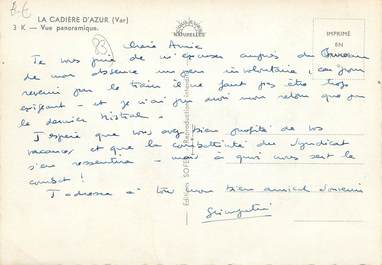 LA CADIÈRE D'AZUR (Var)
3 K — Vue panoramique.
83
Chère Amie
Je vous prie de m'excuser auprès du Bureau
de mon absence un peu involontaire, car pour
revenir par le train il ne faut pas être trop
exigeant - et je n'ai pu avoir mon retour que par
le dernier Mistral.
J'espère que vous avez bien profité de vos
vacances et que la combattivité du Syndicat
s'en ressentira - mais à quoi nous sert le
combat !
J'adresse à tous mon bien amical souvenir
IMPRIMÉ
EN
Reproduction interdite
Editions SOFER